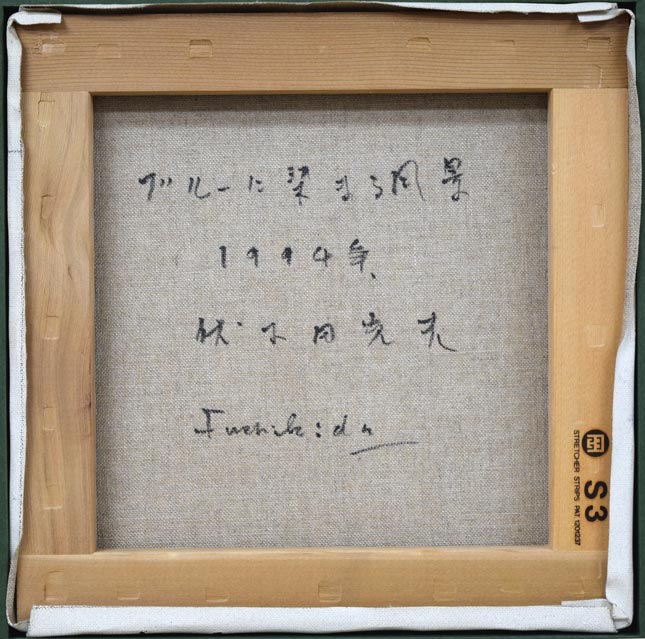 ブルーに染まる風景
1994年
伏木田光夫
Fushikida
S3
STRETCHER STRIPS PAT.1201237